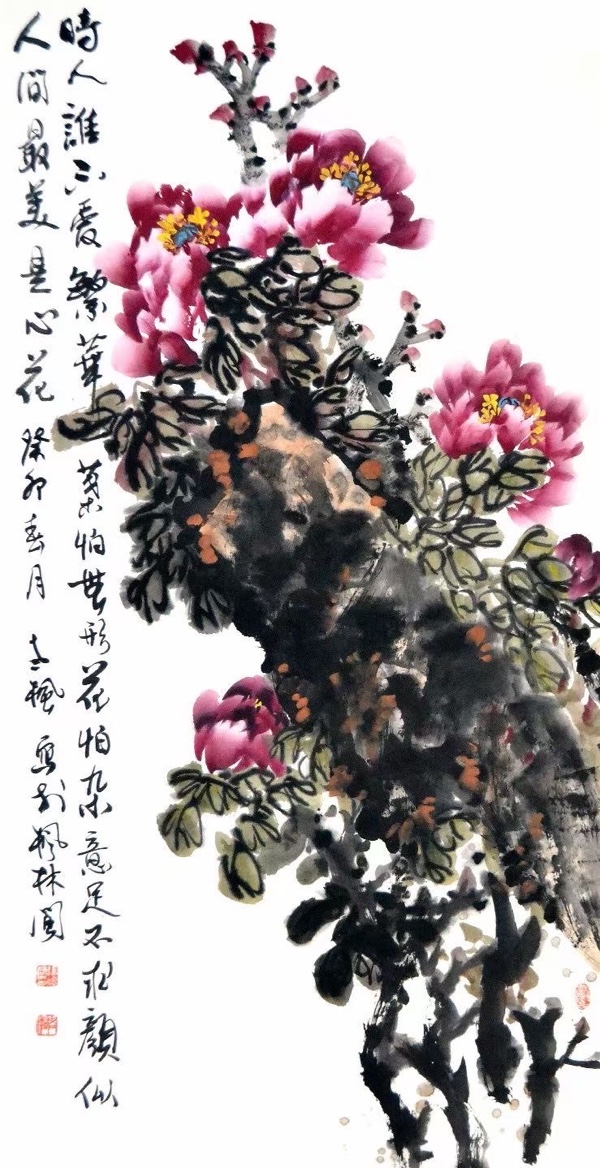 時人誰不愛繁華葉怕無形花怕杂意足不求顏似
人间最美是心花 癸卯春月 志楓寫於楓林園